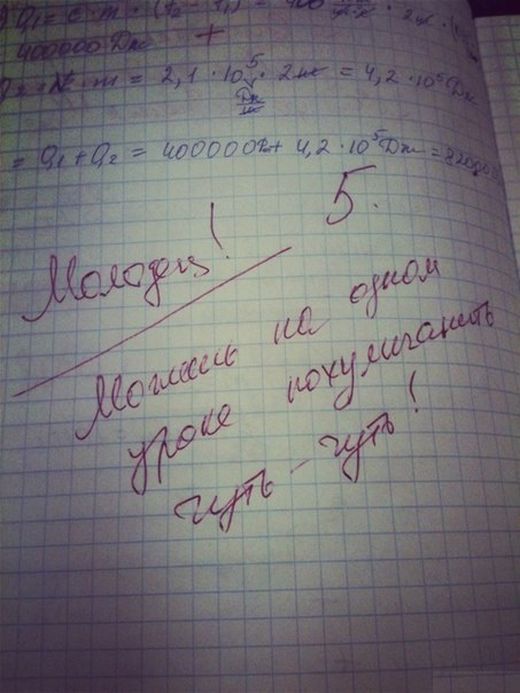 Q₁ = c · m · (t₂ - t₁) = 400
400000 Дж +
m = 2,1 · 10⁵ Дж/кг · 2кг = 4,2 · 10⁵ Дж
= Q₁ + Q₂ = 400000Дж + 4,2 · 10⁵ Дж = 820000
5.
Молодец!
Можешь на одном
уроке похулиганить
чуть-чуть!